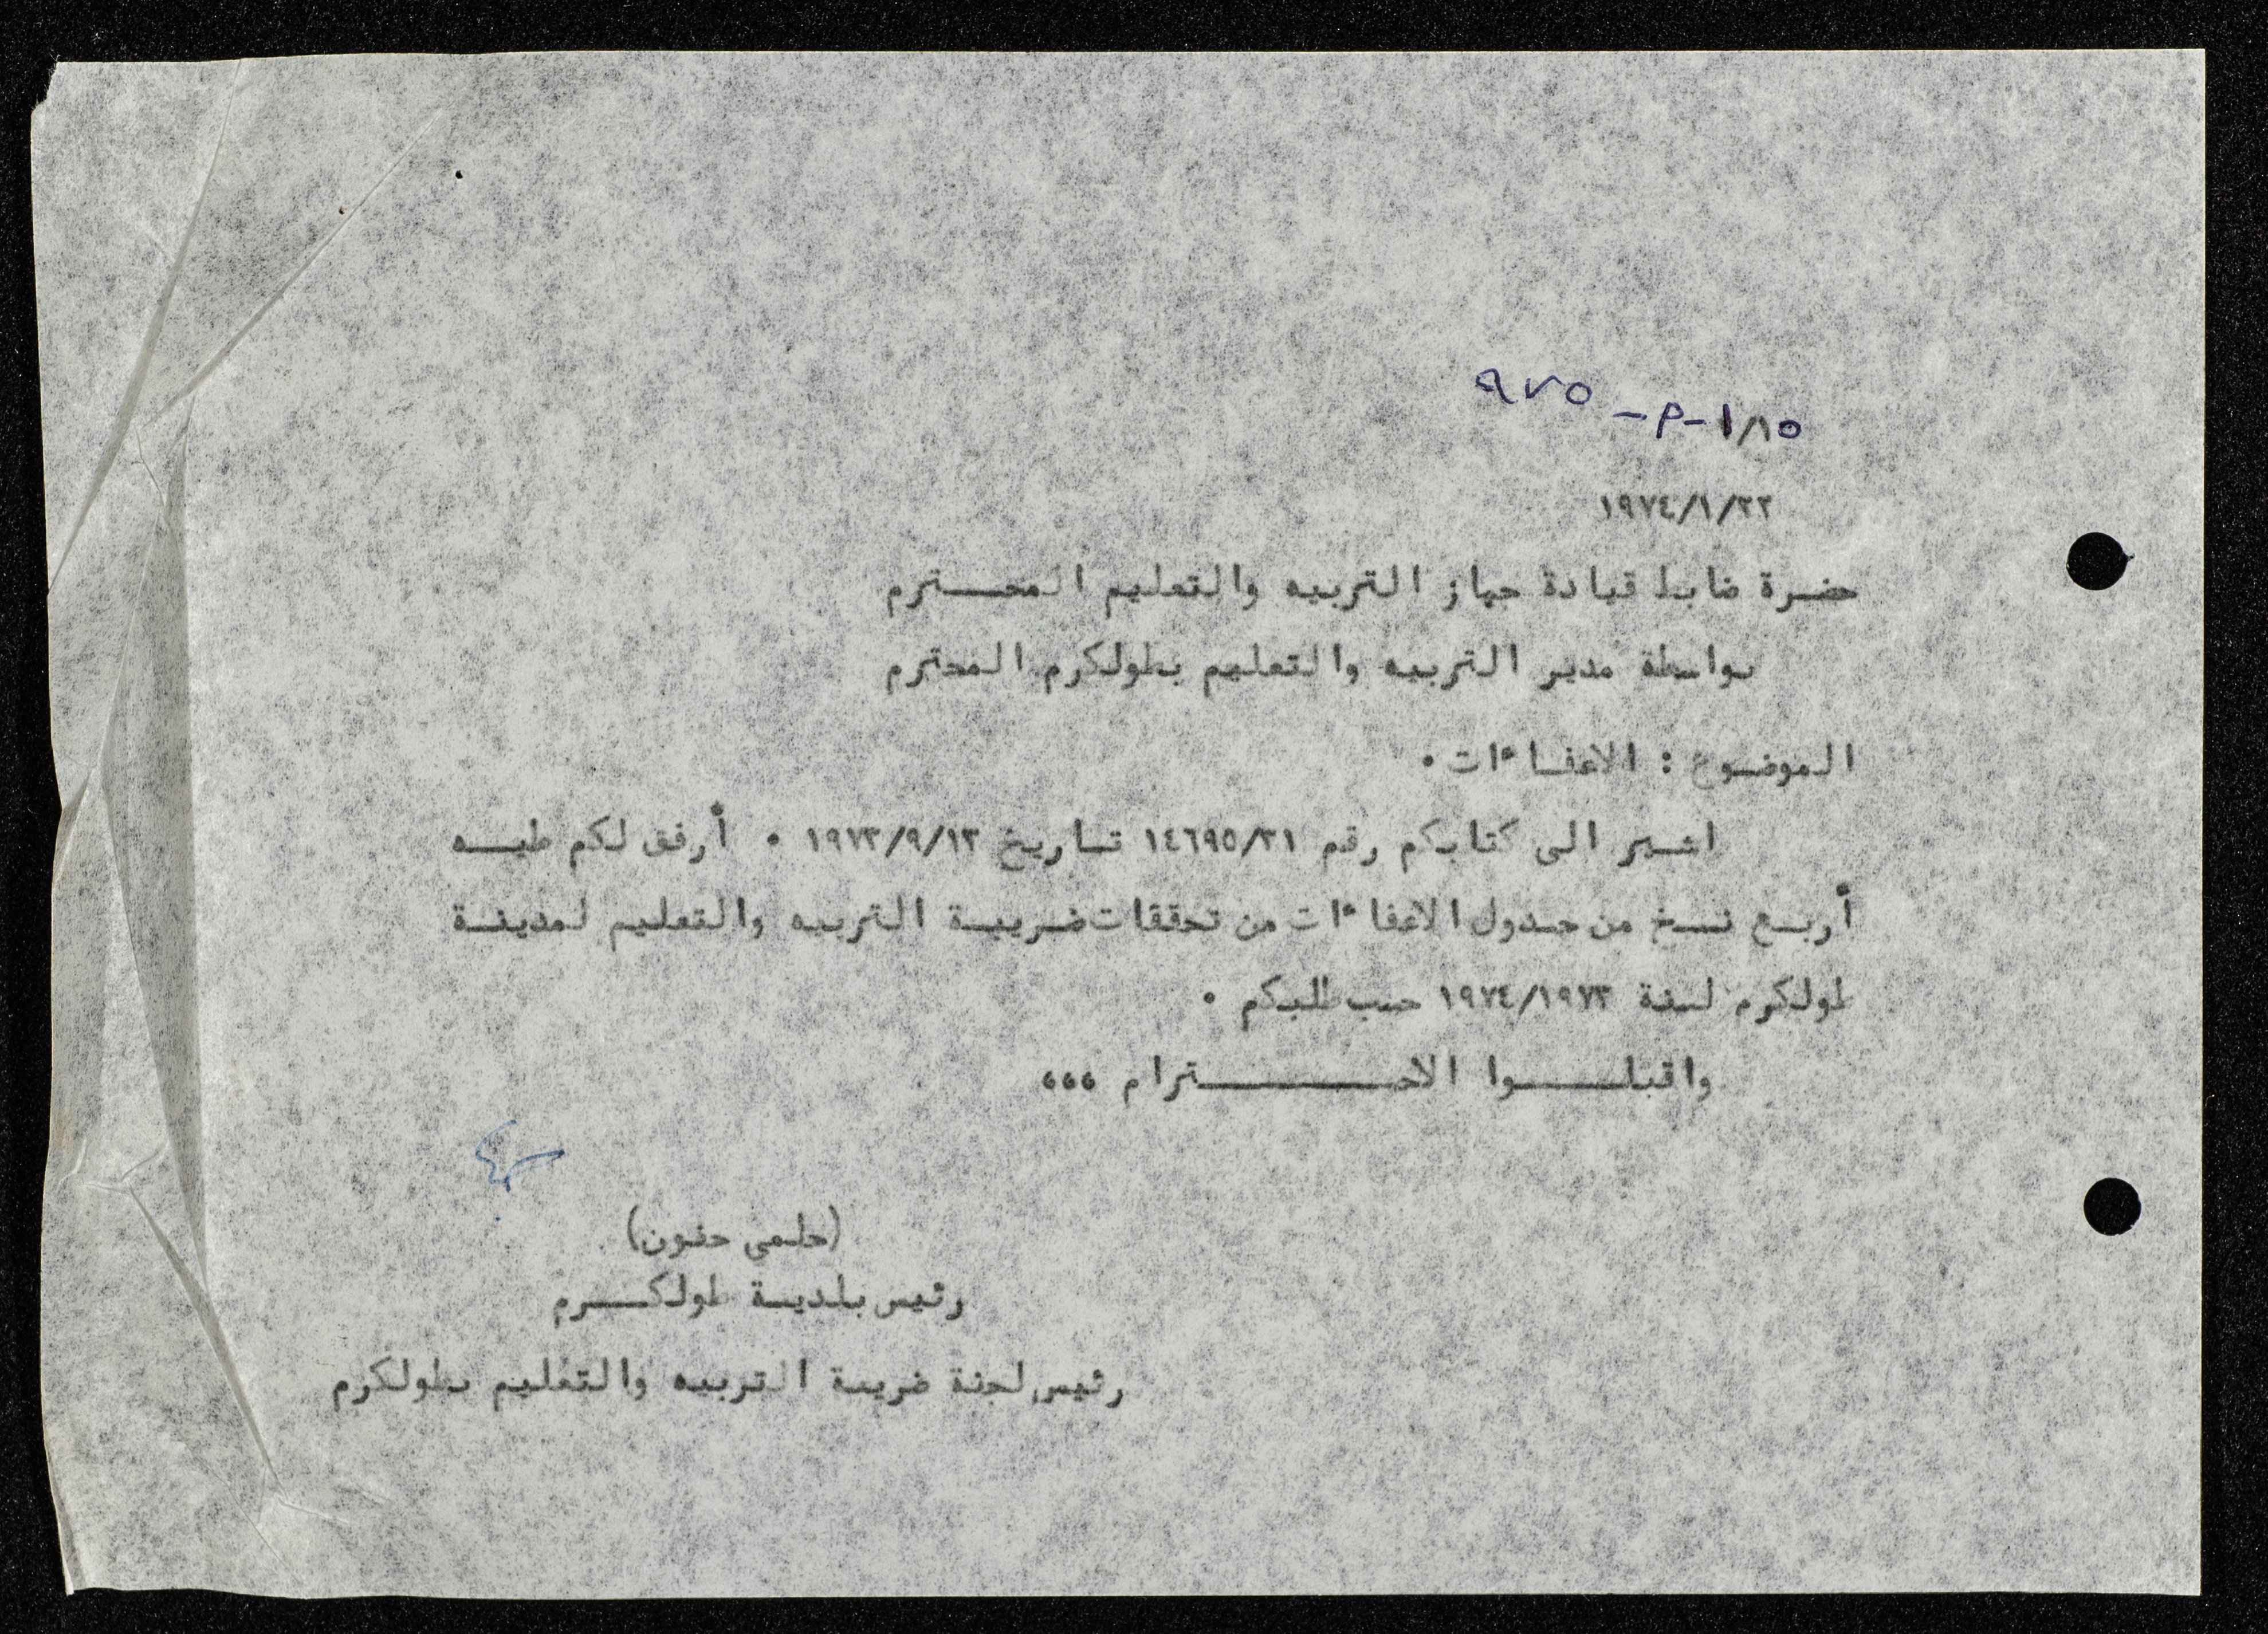 ١/١٥-م-٩٧٥
١٩٧٤/١/٢٢
حضرة ضابط قيادة جهاز التربيه والتعليم المحـــترم
بواسطة مدير التربيه والتعليم بطولكرم المحترم
الموضوع : الاعفاءات ٠
اشير الى كتابكم رقم ١٤٦٩٥/٣١ تاريخ ١٩٧٣/٩/١٣ ٠ أرفق لكم طيــه
أربع نسخ من جدول الاعفاءات من تحققات ضريبة التربيه والتعليم لمدينة
طولكرم لسنة ١٩٧٤/١٩٧٣ حسب طلبكم ٠
واقبلـــوا الاحـــــــترام ،،،
(حلمي حنون)
رئيس بلدية طولكـــرم
رئيس لجنة ضريبة التربيه والتعليم بطولكرم